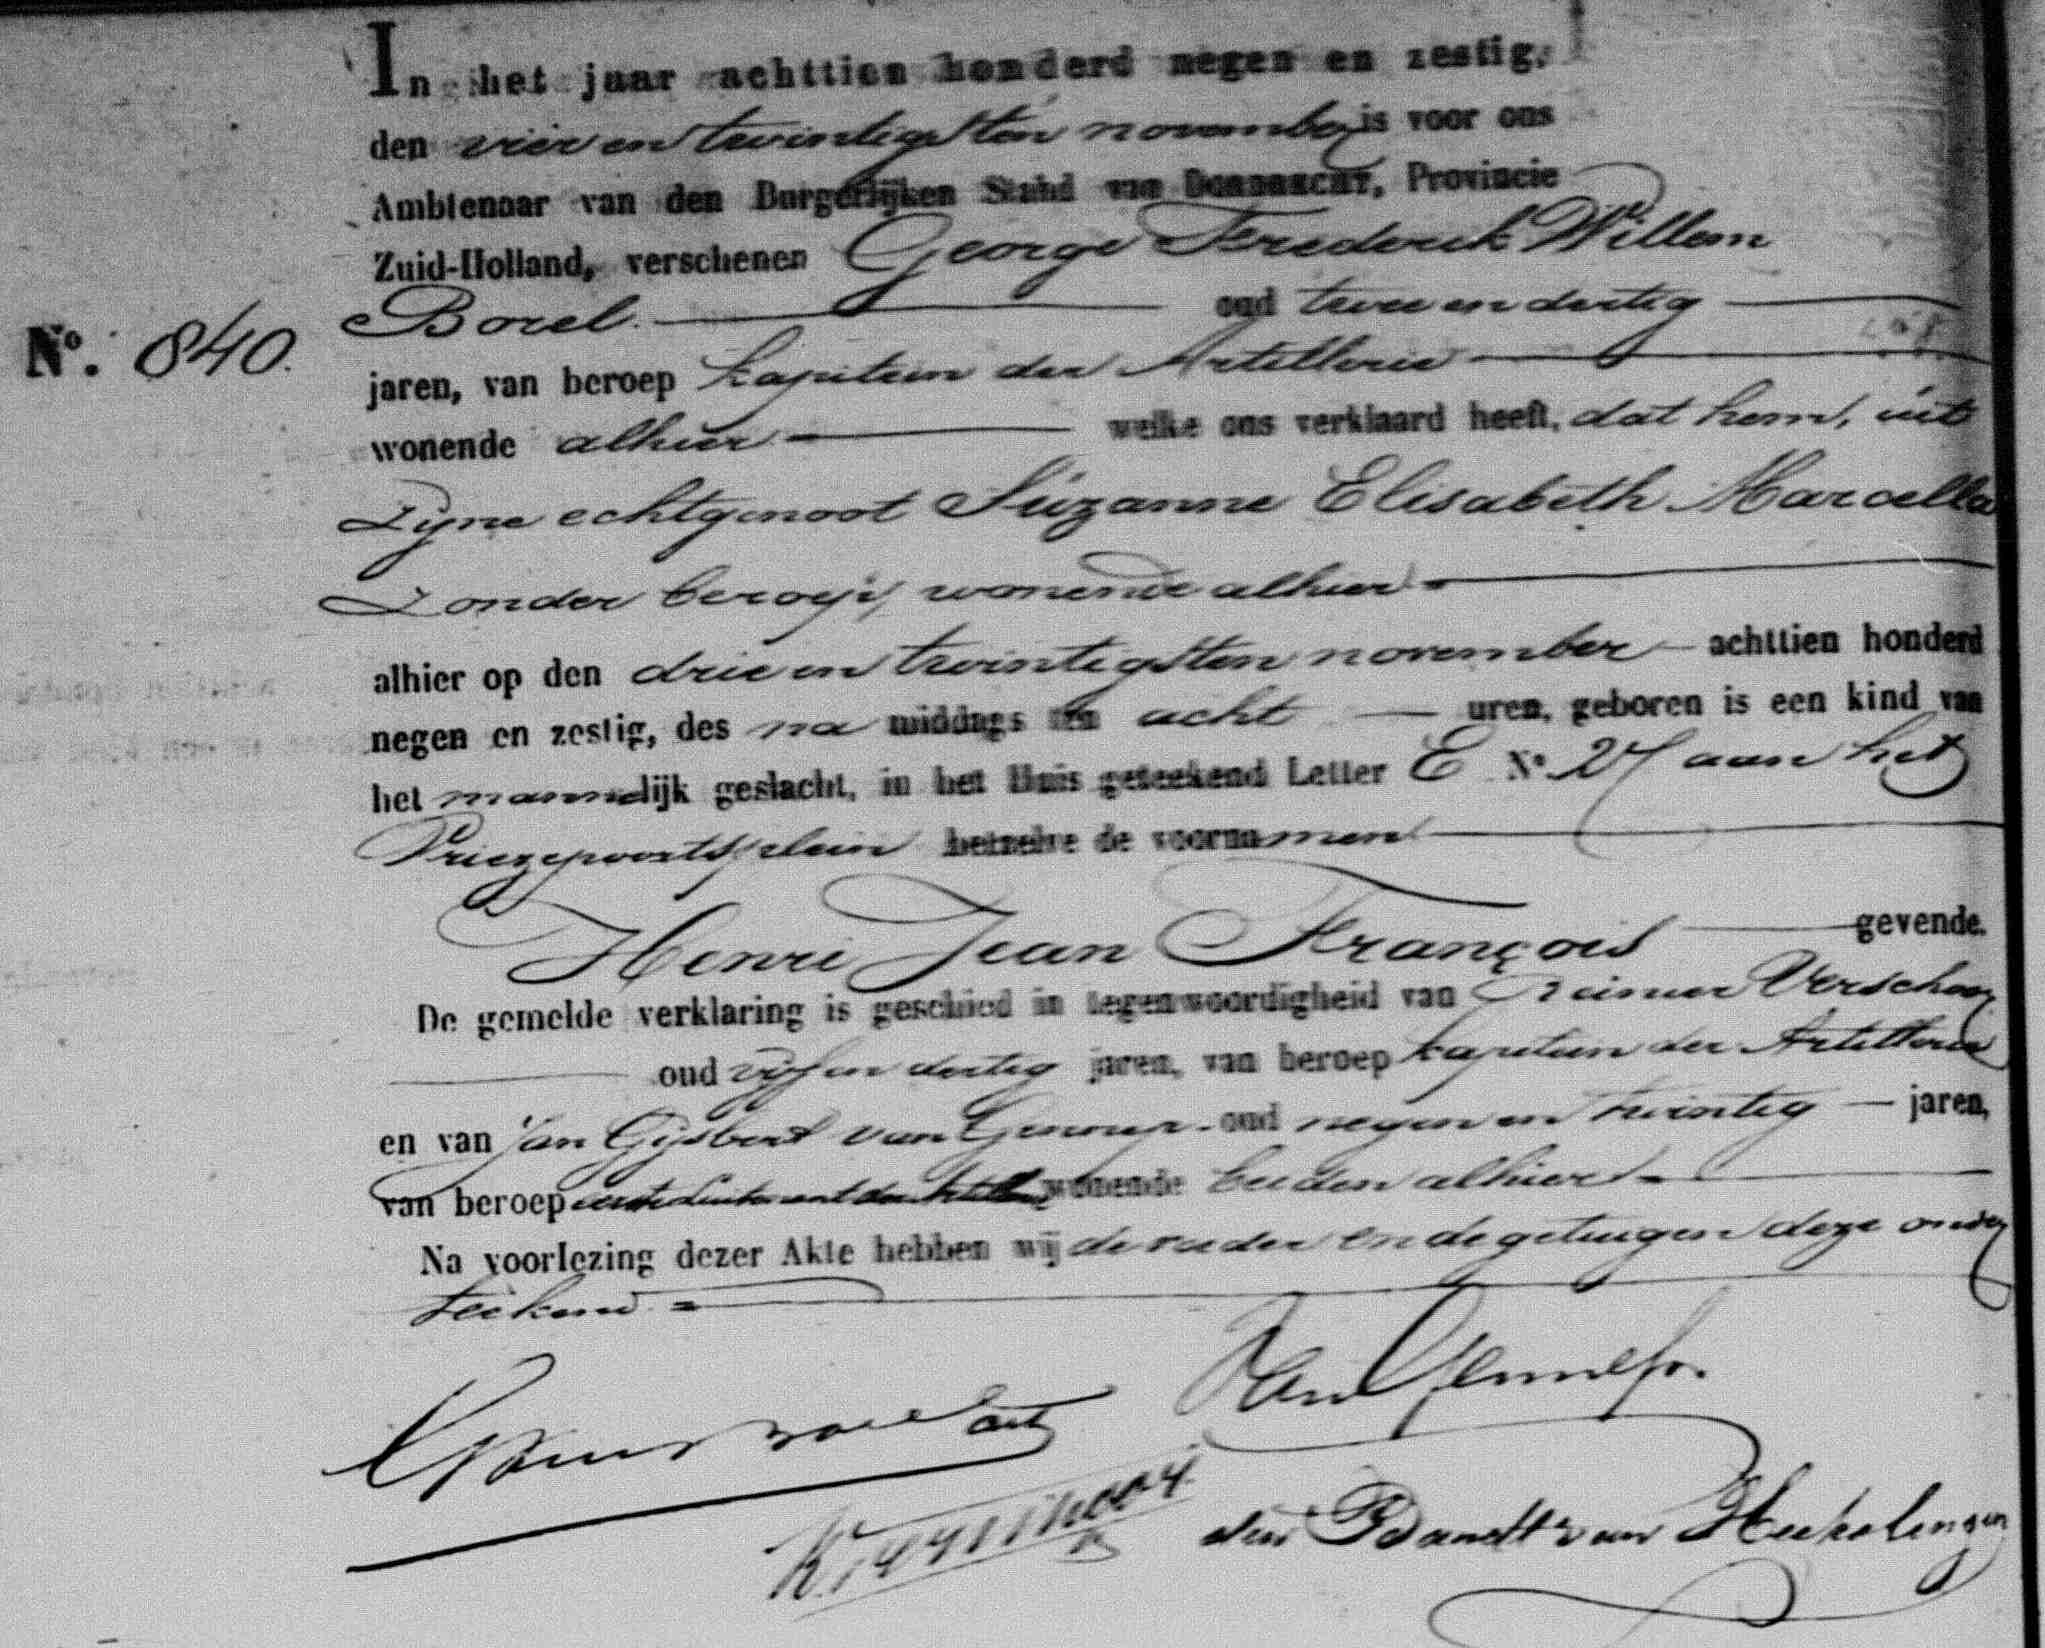 In het jaar achttien honderd negen en zestig,
den vier en twintigsten november is voor ons
Ambtenaar van den Burgerlijken Stand van Dordrecht, Provincie
Zuid-Holland, verschenen George Frederik Willem
Borel oud twee en dertig
Nº. 840.
jaren, van beroep kapitein der Artillerie
wonende alhier welke ons verklaard heeft, dat hem, uit
Zyne echtgenoot Suzanne Elisabeth Marcella
Zonder beroep, wonende alhier
alhier op den drie en twintigsten november achttien honderd
negen en zestig, des na middags ten acht uren, geboren is een kind van
het mannelijk geslacht, in het Huis geteekend Letter E Nº 27 aan het
Vriezepoortsplein hetzelve de voornamen
Henri Jean François gevende.
De gemelde verklaring is geschied in tegenwoordigheid van Reinier Verschoor
oud vijf en dertig jaren, van beroep kapitein der Artillerie
en van Jan Gijsbert van oud negen en twintig jaren,
van beroep eerste luitenant der wonende beiden alhier
Na voorlezing dezer Akte hebben wij de vader en de getuigen deze onder
teekend
van
den Bandt van Heekelingen